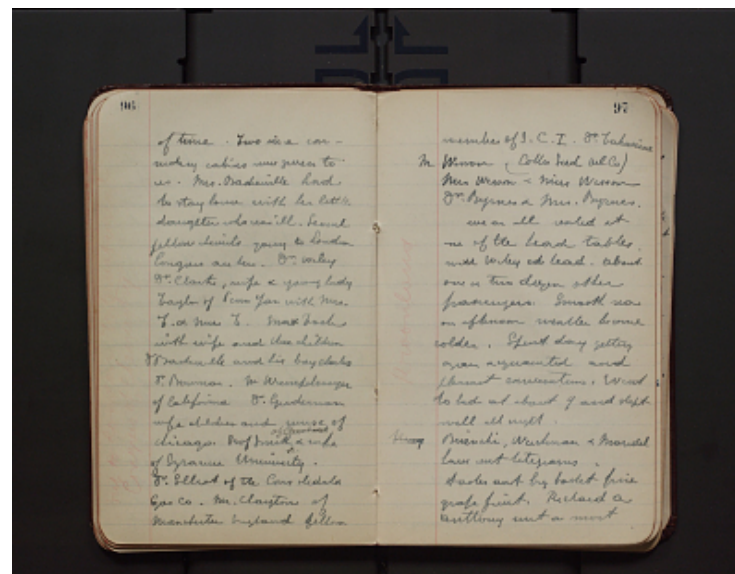 96
of time. Two six a com-
modory cabins were given to
us. Mrs. Baskerville had
to stay home with her little
daughter who was ill. Several
fellow chemists going to London
Congress are here. Dr. Wiley
Dr. Clarke, wife & young lady
Taylor of Penn Yan with Mrs.
T. & Miss T. Max
with wife and two children
Baskerville and his boy Charles
Dr. Bowman. Mr
of California Dr.
wife children and nurse of
Chicago. Prof Smith & wife
of Syracuse University.
Dr. Elliott of the Consolidated
Gas Co. Mr. Clayton of
Manchester England fellow
97
member of S. C. I. Dr. Takamine
Mr Wesson (Cotton Seed Oil Co)
Mrs Wesson & Miss Wesson
Dr. Byrnes & Mrs. Byrnes.
we are all seated at
one of the head tables
with Wiley at head. about
one or two dozen other
passengers. Smooth sea
in afternoon weather became
colder. Spent day getting
again acquainted and
pleasant conversations. Went
to bed at about 9 and slept
well all night.
Bianchi, Weithman &
have sent telegrams.
sent big basket fine
grape fruit. Richard &
Anthony sent a most